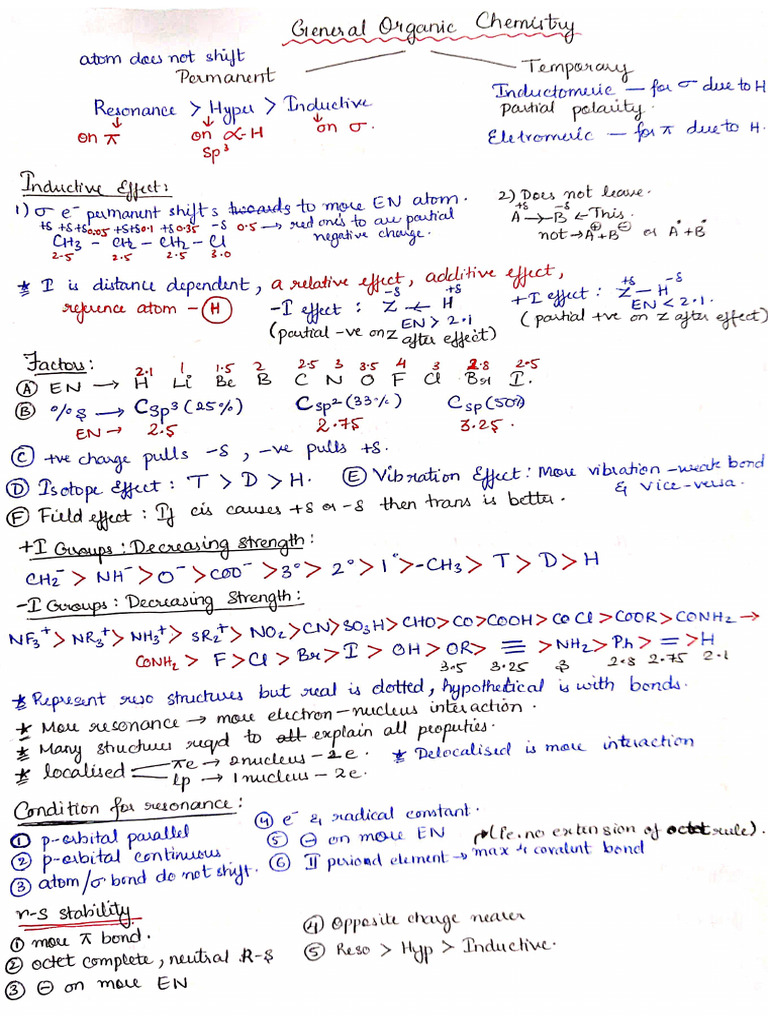 General Organic Chemistry
atom does not shift
Permanent
Temporary
Resonance > Hyper > Inductive
on π
on α-H
sp³
on σ.
Inductomeric — for σ due to H
partial polarity.
Eletromeric — for π due to H.
Inductive Effect:
1) σ e⁻ permanent shifts towards to more EN atom.
+S +S+S0.05 +S+S0.1 +S0.35 -S 0.5 → red ones to are partial
negative charge.
CH₃ – CH₂ – CH₂ – Cl
2.5 2.5 2.5 3.0
2) Does not leave.
+S -S
A → B ← This.
not → A⊕ + B⊖ or A• + B•
* I is distance dependent, a relative effect, additive effect,
reference atom – H
-I effect : Z⁻ˢ ← H⁺ˢ
EN > 2.1
(partial -ve on Z after effect)
+I effect : Z⁺ˢ – H⁻ˢ
EN < 2.1.
(partial +ve on Z after effect)
Factors:
2.1 1 1.5 2 2.5 3 3.5 4 3 2.8 2.5
A EN → H Li Be B C N O F Cl Br I.
B %s → Csp³(25%) Csp²(33%) Csp(50%)
EN → 2.5 2.75 3.25.
C +ve charge pulls -S, -ve pulls +S.
D Isotope Effect : T > D > H.
E Vibration Effect: More vibration – weak bond
& vice-versa.
F Field effect : If cis causes +S or -S then trans is better.
+I Groups : Decreasing strength:
CH₂⁻ > NH⁻ > O⁻ > COO⁻ > 3° > 2° > 1° > -CH₃ > T > D > H
-I Groups : Decreasing Strength:
NF₃⁺ > NR₃⁺ > NH₃⁺ > SR₂⁺ > NO₂ > CN > SO₃H > CHO > CO > COOH > COCl > COOR > CONH₂ →
CONH₂ > F > Cl > Br > I > OH > OR > ≡ > NH₂ > Ph > = > H
3.5 3.25 3 2.8 2.75 2.1
* Represent reso structures but real is dotted, hypothetical is with bonds.
* More resonance → more electron-nucleus interaction.
* Many structures reqd to all explain all properties.
* localised
πe → 2 nucleus – 2e.
lp → 1 nucleus – 2e.
* Delocalised is more interaction
Condition for resonance:
1 p-orbital parallel
2 p-orbital continuous
3 atom/σ bond do not shift.
4 e⁻ & radical constant.
5 ⊖ on more EN
(Pe. no extension of octet rule).
6 II period element → max 4 covalent bond
r-s stability
1 more π bond.
2 octet complete, neutral R-S
3 ⊖ on more EN
4 Opposite charge nearer
5 Reso > Hyp > Inductive.